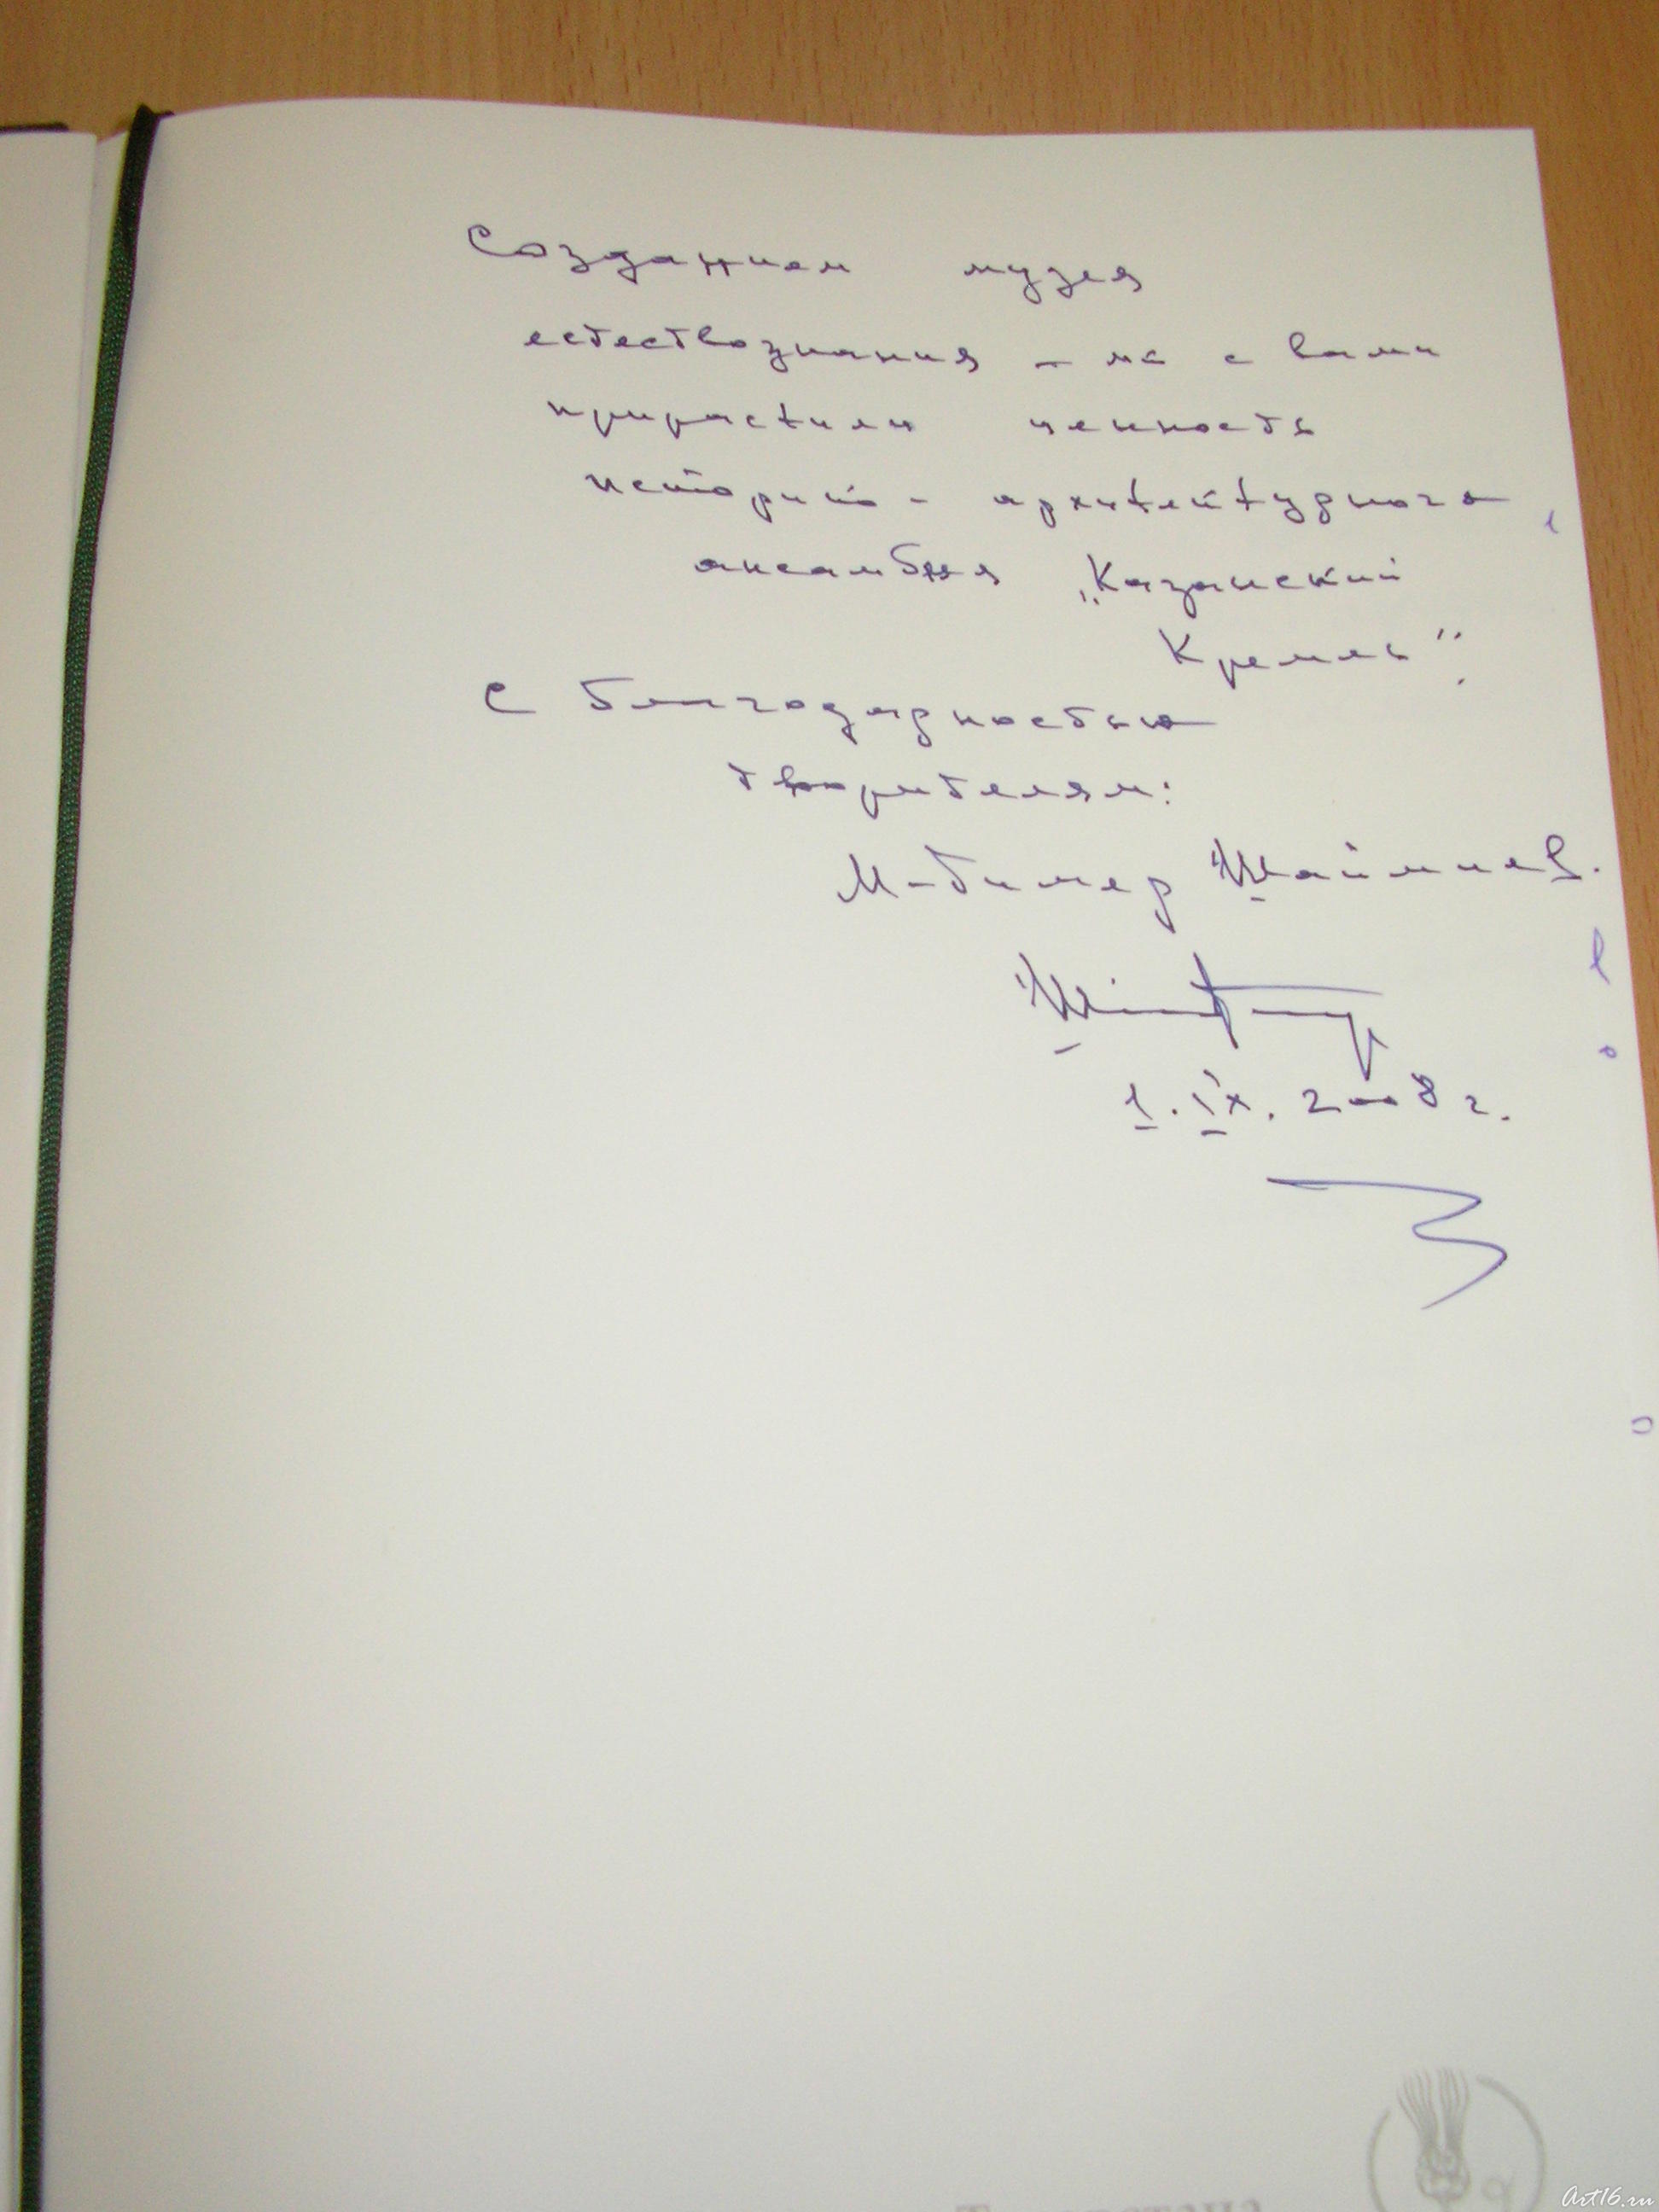 Созданием музея
естествознания – мы с вами
прирастили ценность
историко - архитектурного
ансамбля „Казанский
Кремль".
С благодарностью
творителям:
М-Тимер Шаймиев.
1. IX. 2008 г.
Art16.ru